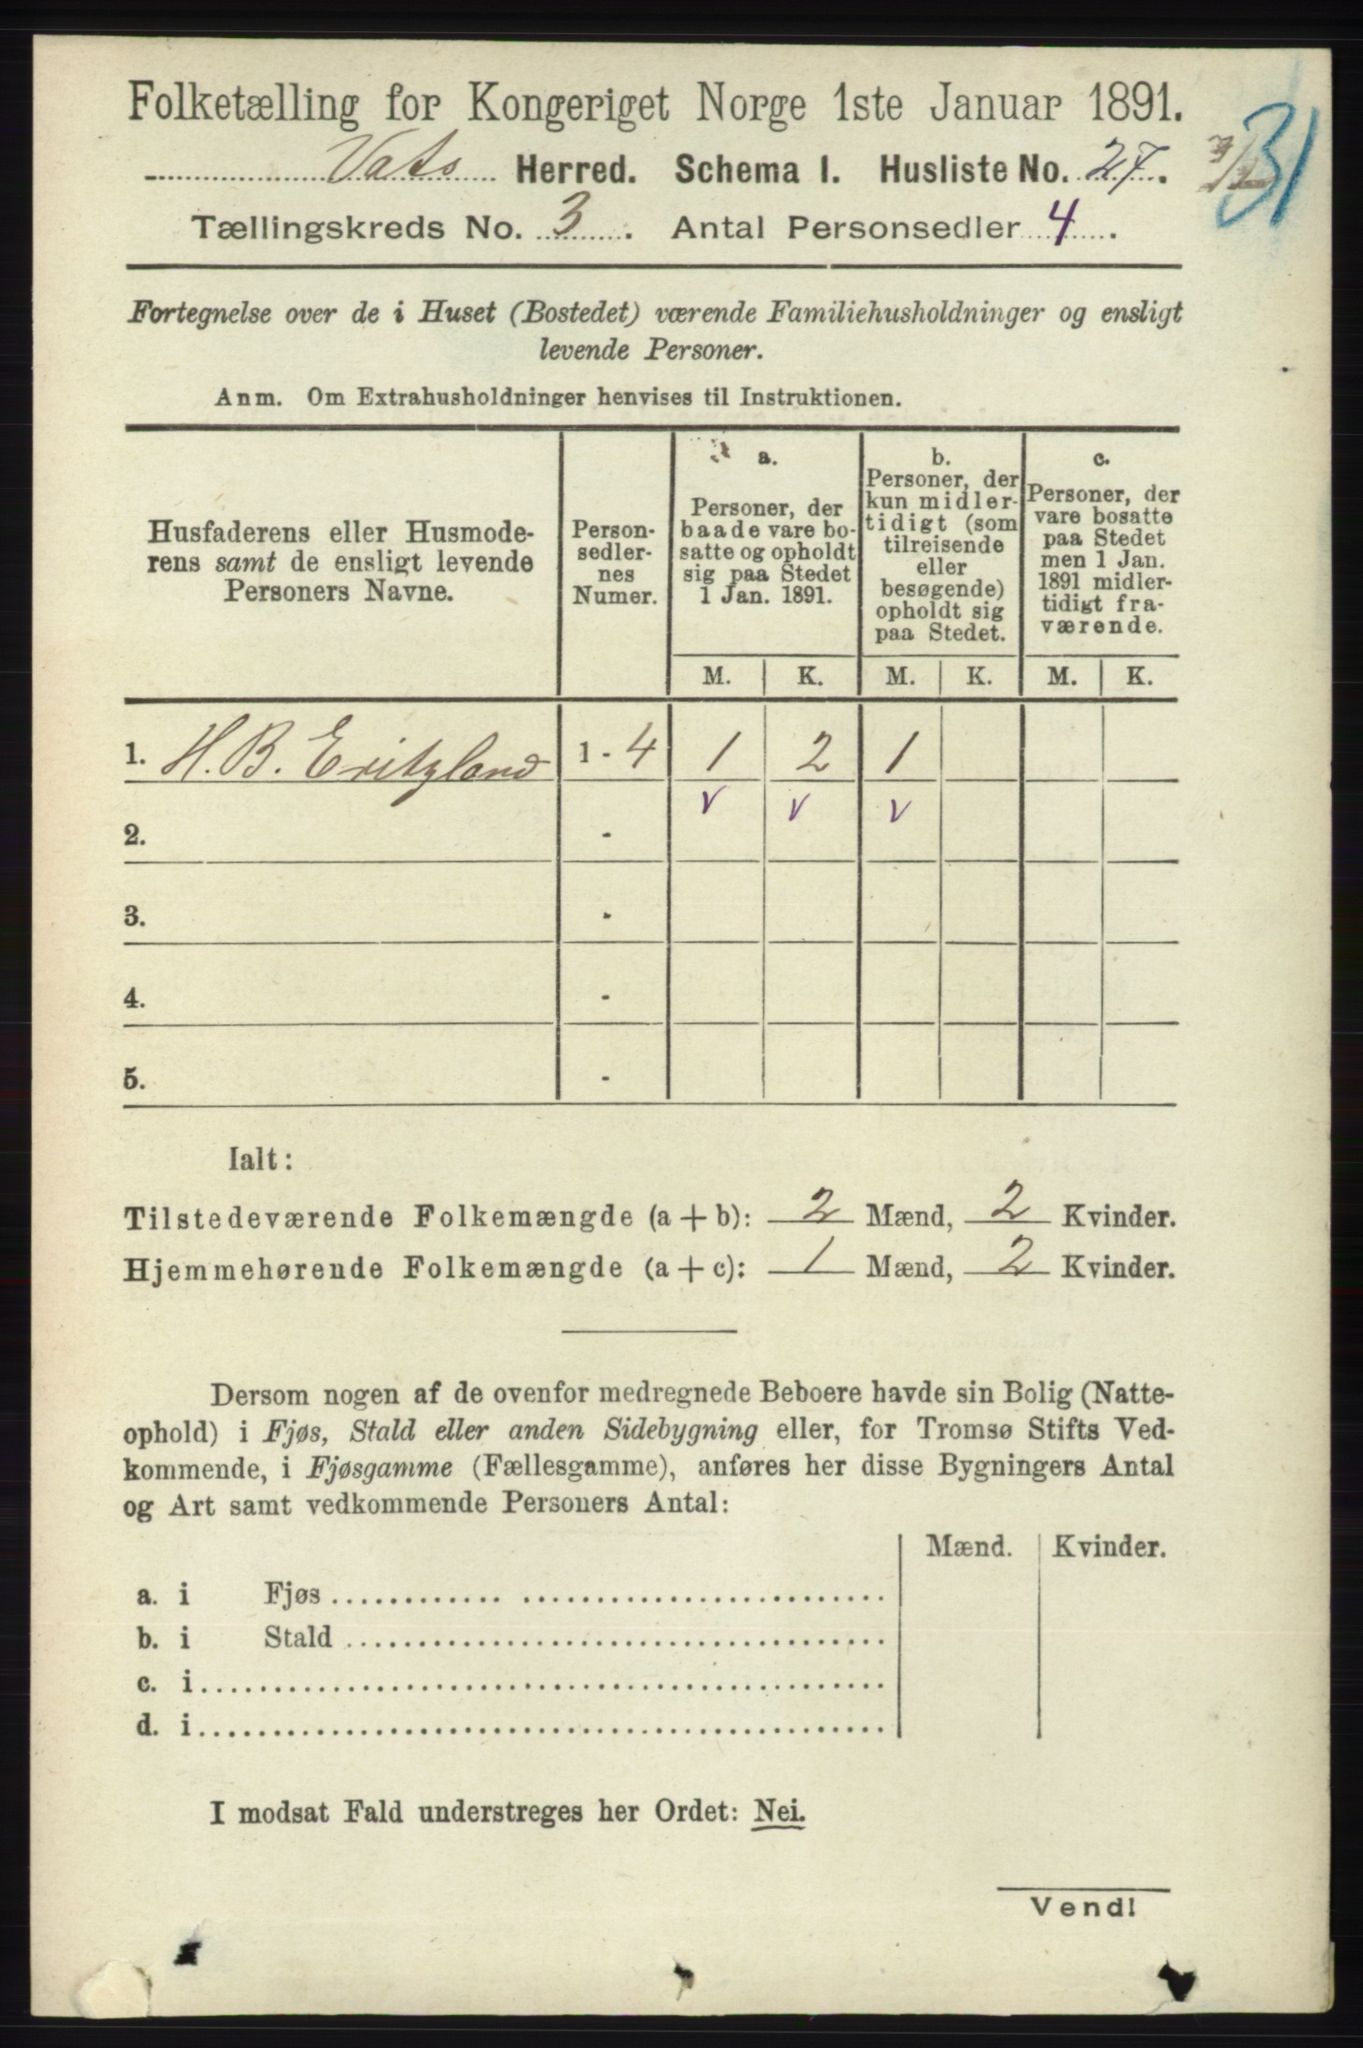 Folketælling for Kongeriget Norge 1ste Januar 1891.
Vats Herred. Schema I. Husliste No. 27.
31
Tællingskreds No. 3. Antal Personsedler 4.
Fortegnelse over de i Huset (Bostedet) værende Familiehusholdninger og ensligt
levende Personer.
Anm. Om Extrahusholdninger henvises til Instruktionen.
Husfaderens eller Husmode-
rens samt de ensligt levende
Personers Navne.
Person-
sedler-
nes
Numer.
a.
Personer, der
baade vare bo-
satte og opholdt
sig paa Stedet
1 Jan. 1891.
b.
Personer, der
kun midler-
tidigt (som
tilreisende
eller
besøgende)
opholdt sig
paa Stedet.
c.
Personer, der
vare bosatte
paa Stedet
men 1 Jan.
1891 midler-
tidigt fra-
værende.
M. K. M. K. M. K.
1. H. B. Eritzland 1 - 4 1 2 1
v v v
2. -
3. -
4. -
5. -
Ialt:
Tilstedeværende Folkemængde (a + b): 2 Mænd, 2 Kvinder.
Hjemmehørende Folkemængde (a + c): 1 Mænd, 2 Kvinder.
Dersom nogen af de ovenfor medregnede Beboere havde sin Bolig (Natte-
ophold) i Fjøs, Stald eller anden Sidebygning eller, for Tromsø Stifts Ved-
kommende, i Fjøsgamme (Fællesgamme), anføres her disse Bygningers Antal
og Art samt vedkommende Personers Antal:
Mænd. Kvinder.
a. i Fjøs
b. i Stald
c. i
d. i
I modsat Fald understreges her Ordet: Nei.
Vend!